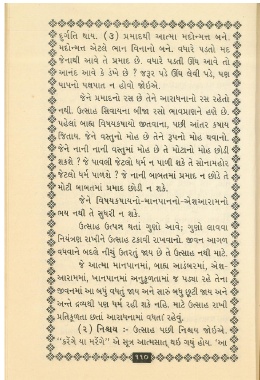 દુર્ગતિ થાય. (૩) પ્રમાદથી આત્મા મદોન્મત્ત બને.
મદોન્મત્ત એટલે ભાન વિનાનો બને. વધારે પડતો મદ
જેનાથી આવે તે પ્રમાદ છે. વધારે પડતી ઊંઘ આવે તો
આનંદ આવે કે ડંખે છે ? જરૂર પડે ઊંઘ લેવી પડે, પણ
પાપનો પક્ષપાત ન હોવો જોઈએ.
જેને પ્રમાદનો રસ છે તેને આરાધનાનો રસ રહેતો
નથી. ઉત્સાહ સિવાયના બીજા રસો ભાવપ્રાણને હણે છે.
પહેલાં બાહ્ય વિષયકષાયો જીતવાના, પછી આંતર કષાય
જિતાય. જેને વસ્તુનો મોહ છે તેને રૂપનો મોહ થવાનો.
જેને નાની નાની વસ્તુમાં મોહ છે તે મોટાનો મોહ છોડી
શકશે ? જે પાવલી જેટલો ધર્મ ન પાળી શકે તે સોનામહોર
જેટલો ધર્મ પાળશે ? જે નાની બાબતમાં પ્રમાદ ન છોડે તે
મોટી બાબતમાં પ્રમાદ છોડી ન શકે.
જેને વિષયકષાયનો-માનપાનનો-એશઆરામનો
ભય નથી તે સુધરી ન શકે.
ઉત્સાહ ઉત્પન્ન થતાં ગુણો આવે; ગુણો લાવવા
નિયંત્રણ રાખીને ઉત્સાહ ટકાવી રાખવાનો. જીવન આગળ
વધવાને બદલે નીચું ઉતરતું જાય છે તે ઉત્સાહ નથી માટે.
જે આત્મા માનપાનમાં, બાહ્ય આડંબરમાં, એશ-
આરામમાં, ખાનપાનમાં અનુકૂળતામાં જ પડ્યા રહે તેના
જીવનમાં આ બધું વધતું જાય અને સારું બધું છૂટી જાય અને
અન્તે દ્રવ્યથી પણ ધર્મ રહી શકે નહિ. માટે ઉત્સાહ રાખી
પ્રતિકૂળતા છતાં આરાધનામાં વધતા રહેવું.
(૨) નિશ્ચય :- ઉત્સાહ પછી નિશ્ચય જોઈએ.
"કરેંગે યા મરેંગે" એ સૂત્ર આત્મસાત્ થઇ ગયું હોય. 'આ
૧૧૦